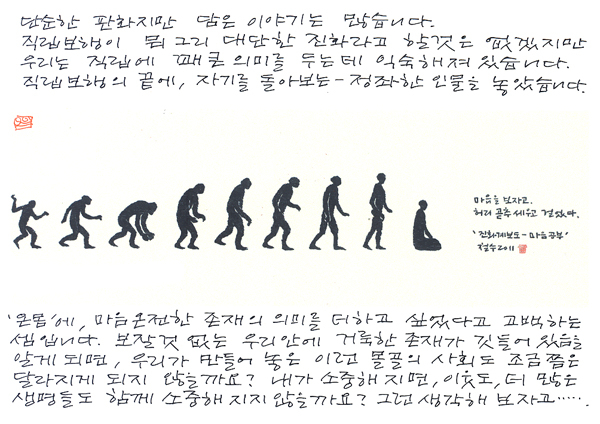 단순한 판화지만 담은 이야기는 많습니다.
직립보행이 뭐 그리 대단한 진화라고 할것은 없겠지만
우리는 직립에 꽤 큰 의미를 두는데 익숙해져 있습니다.
직립보행의 끝에, 자기를 돌아보는-정좌한 인물을 놓았습니다.
마음을 보자고.
허리 곧추 세우고 걸었다.
'진화계보도-마음공부'
철수 2011
'온몸'에, 마음온전한 존재의 의미를 더하고 싶었다고 고백하는
셈입니다. 보잘것 없는 우리안에 거룩한 존재가 깃들어 있음을
알게 되면, 우리가 만들어 놓은 이런 몰골의 사회도 조금쯤은
달라지게 되지 않을까요? 내가 소중해지면, 이웃도, 더 많은
생명들도 함께 소중해지지 않을까요? 그런 생각해 보자고.....